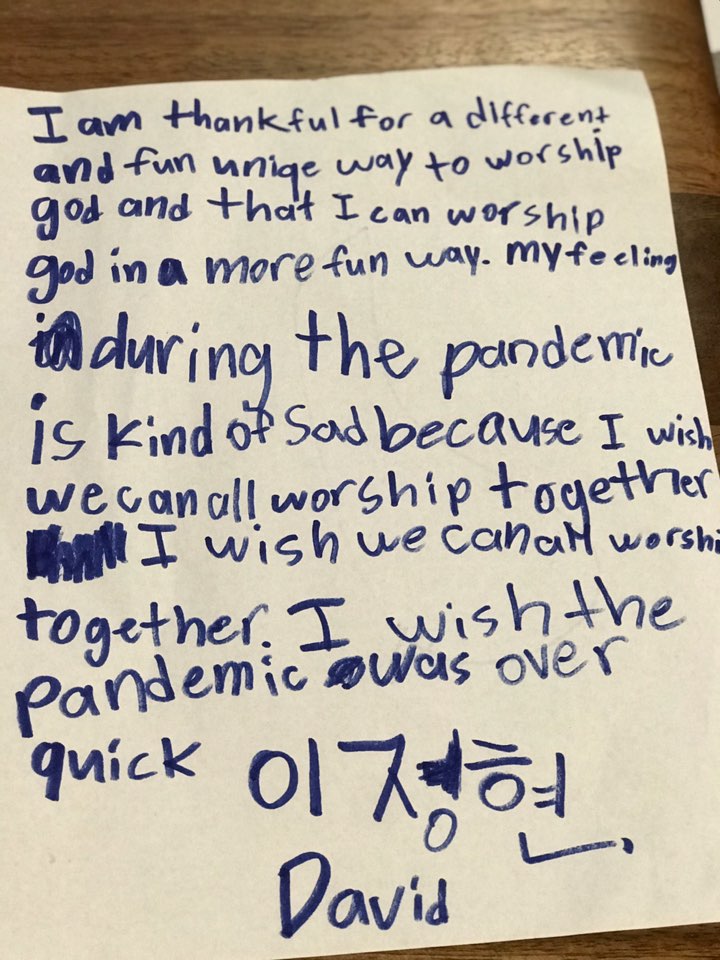 I am thankful for a different
and fun uniqe way to worship
god and that I can worship
god in a more fun way. my feeling
during the pandemic
is kind of sad because I wish
we can all worship together
I wish we can all worshi
together. I wish the
pandemic was over
quick 이정현
David